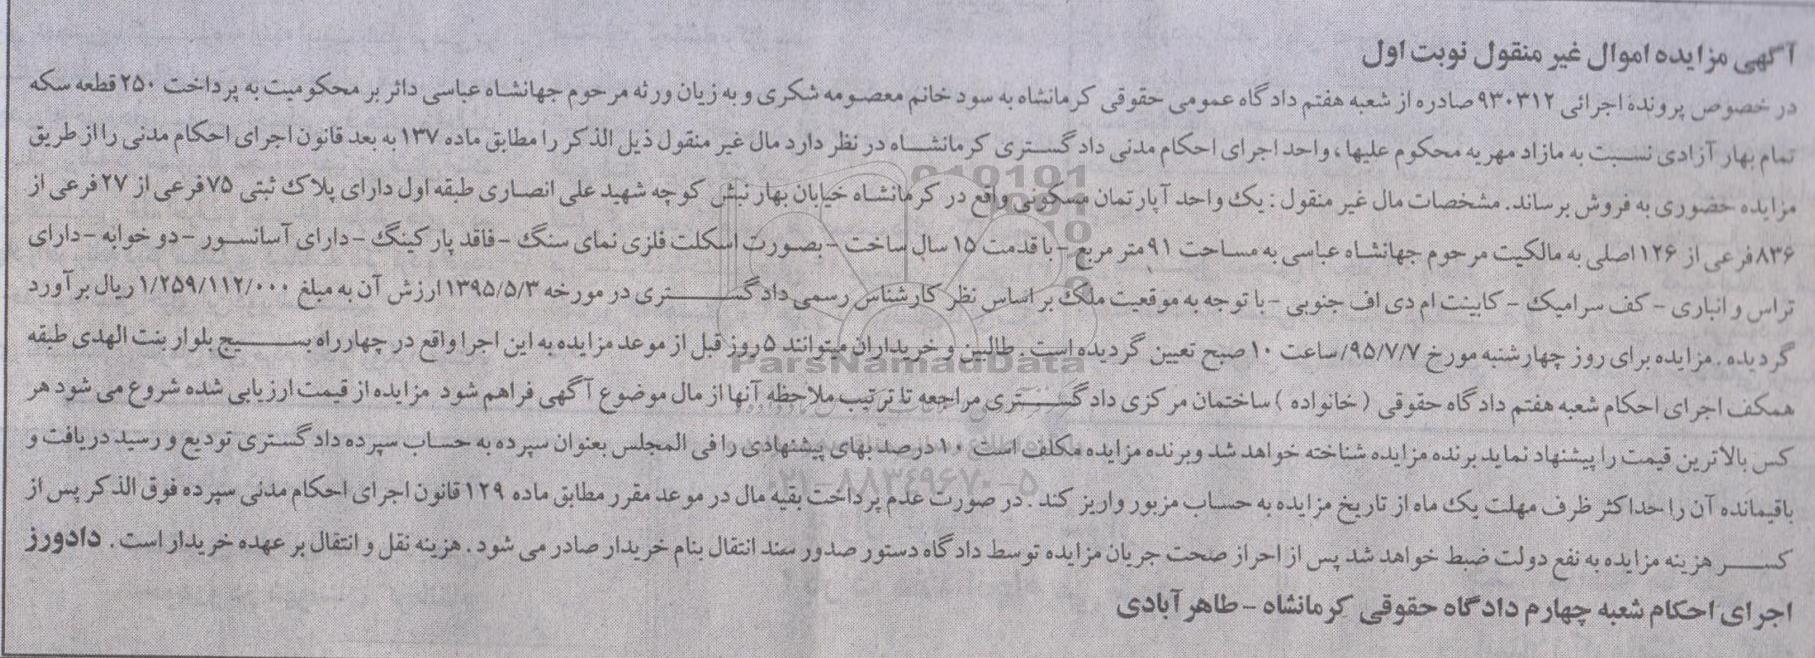 آگهی مزایده اموال غیر منقول نوبت اول
در خصوص پرونده اجرائی ۹۳۰۳۱۲ صادره از شعبه هفتم دادگاه عمومی حقوقی کرمانشاه به سود خانم معصومه شکری و به زیان ورثه مرحوم جهانشاه عباسی دائر بر محکومیت به پرداخت ۲۵۰ قطعه سکه
تمام بهار آزادی نسبت به مازاد مهریه محکوم علیها ، واحد اجرای احکام مدنی دادگستری کرمانشاه در نظر دارد مال غیر منقول ذیل الذکر را مطابق ماده ۱۳۷ به بعد قانون اجرای احکام مدنی را از طریق
مزایده حضوری به فروش برساند. مشخصات مال غیر منقول : یک واحد آپارتمان مسکونی واقع در کرمانشاه خیابان بهار نبش کوچه شهید علی انصاری طبقه اول دارای پلاک ثبتی ۷۵ فرعی از ۲۷ فرعی از
۸۳۶ فرعی از ۱۲۶ اصلی به مالکیت مرحوم جهانشاه عباسی به مساحت ۹۱ متر مربع - با قدمت ۱۵ سال ساخت - بصورت اسکلت فلزی نمای سنگ - فاقد پارکینگ - دارای آسانسور - دو خوابه - دارای
تراس و انباری - کف سرامیک - کابینت ام دی اف جنوبی - با توجه به موقعیت ملک بر اساس نظر کارشناس رسمی دادگستری در مورخه ۱۳۹۵/۵/۳ ارزش آن به مبلغ ۱/۲۵۹/۱۱۲/۰۰۰ ریال برآورد
گردیده . مزایده برای روز چهارشنبه مورخ ۹۵/۷/۷/ ساعت ۱۰ صبح تعیین گردیده است . طالبین و خریداران میتوانند ۵ روز قبل از موعد مزایده به این اجرا واقع در چهارراه بسیج بلوار بنت الهدی طبقه
همکف اجرای احکام شعبه هفتم دادگاه حقوقی ( خانواده ) ساختمان مرکزی دادگستری مراجعه تا ترتیب ملاحظه آنها از مال موضوع آگهی فراهم شود مزایده از قیمت ارزیابی شده شروع می شود هر
کس بالاترین قیمت را پیشنهاد نماید برنده مزایده شناخته خواهد شد و برنده مزایده مکلف است ۱۰ درصد بهای پیشنهادی را فی المجلس بعنوان سپرده به حساب سپرده دادگستری تودیع و رسید دریافت و
باقیمانده آن را حداکثر ظرف مهلت یک ماه از تاریخ مزایده به حساب مزبور واریز کند . در صورت عدم پرداخت بقیه مال در موعد مقرر مطابق ماده ۱۲۹ قانون اجرای احکام مدنی سپرده فوق الذکر پس از
کسر هزینه مزایده به نفع دولت ضبط خواهد شد پس از احراز صحت جریان مزایده توسط دادگاه دستور صدور سند انتقال بنام خریدار صادر می شود . هزینه نقل و انتقال بر عهده خریدار است . دادورز
اجرای احکام شعبه چهارم دادگاه حقوقی کرمانشاه - طاهرآبادی
ParsNamadData
۰۲۱-۸۸۳۴۹۶۷۰-۵